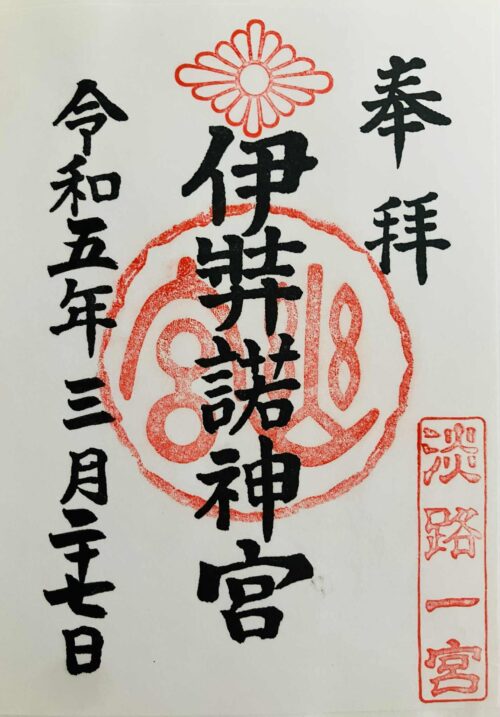 奉拝
淡路一宮
伊弉諾神宮
令和五年三月二十七日